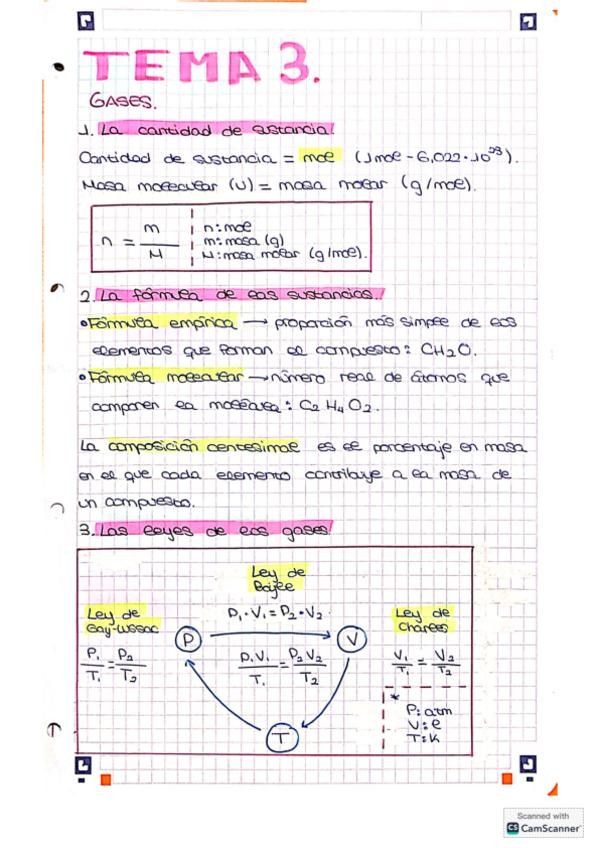 TEMA 3.
GASES.
1. La cantidad de sustancia!
Cantidad de sustancia = mol (1mol - 6,022·10²³).
Masa molecular (u) = masa molar (g/mol).
n = m/M
n: mol
m: masa (g)
M: masa molar (g/mol).
2. La fórmula de las sustancias.
• Fórmula empírica → proporción más simple de los
elementos que forman el compuesto: CH₂O.
• Fórmula molecular → número real de átomos que
componen la molécula: C₂H₄O₂.
La composición centesimal es el porcentaje en masa
en el que cada elemento contribuye a la masa de
un compuesto.
3. Las leyes de los gases
Ley de
Boyle
P₁·V₁ = P₂·V₂
Ley de
Gay-Lussac
P₁/T₁ = P₂/T₂
P
V
T
P₁V₁/T₁ = P₂V₂/T₂
Ley de
Charles
V₁/T₁ = V₂/T₂
*
P: atm
V: l
T: K
Scanned with
CS CamScanner